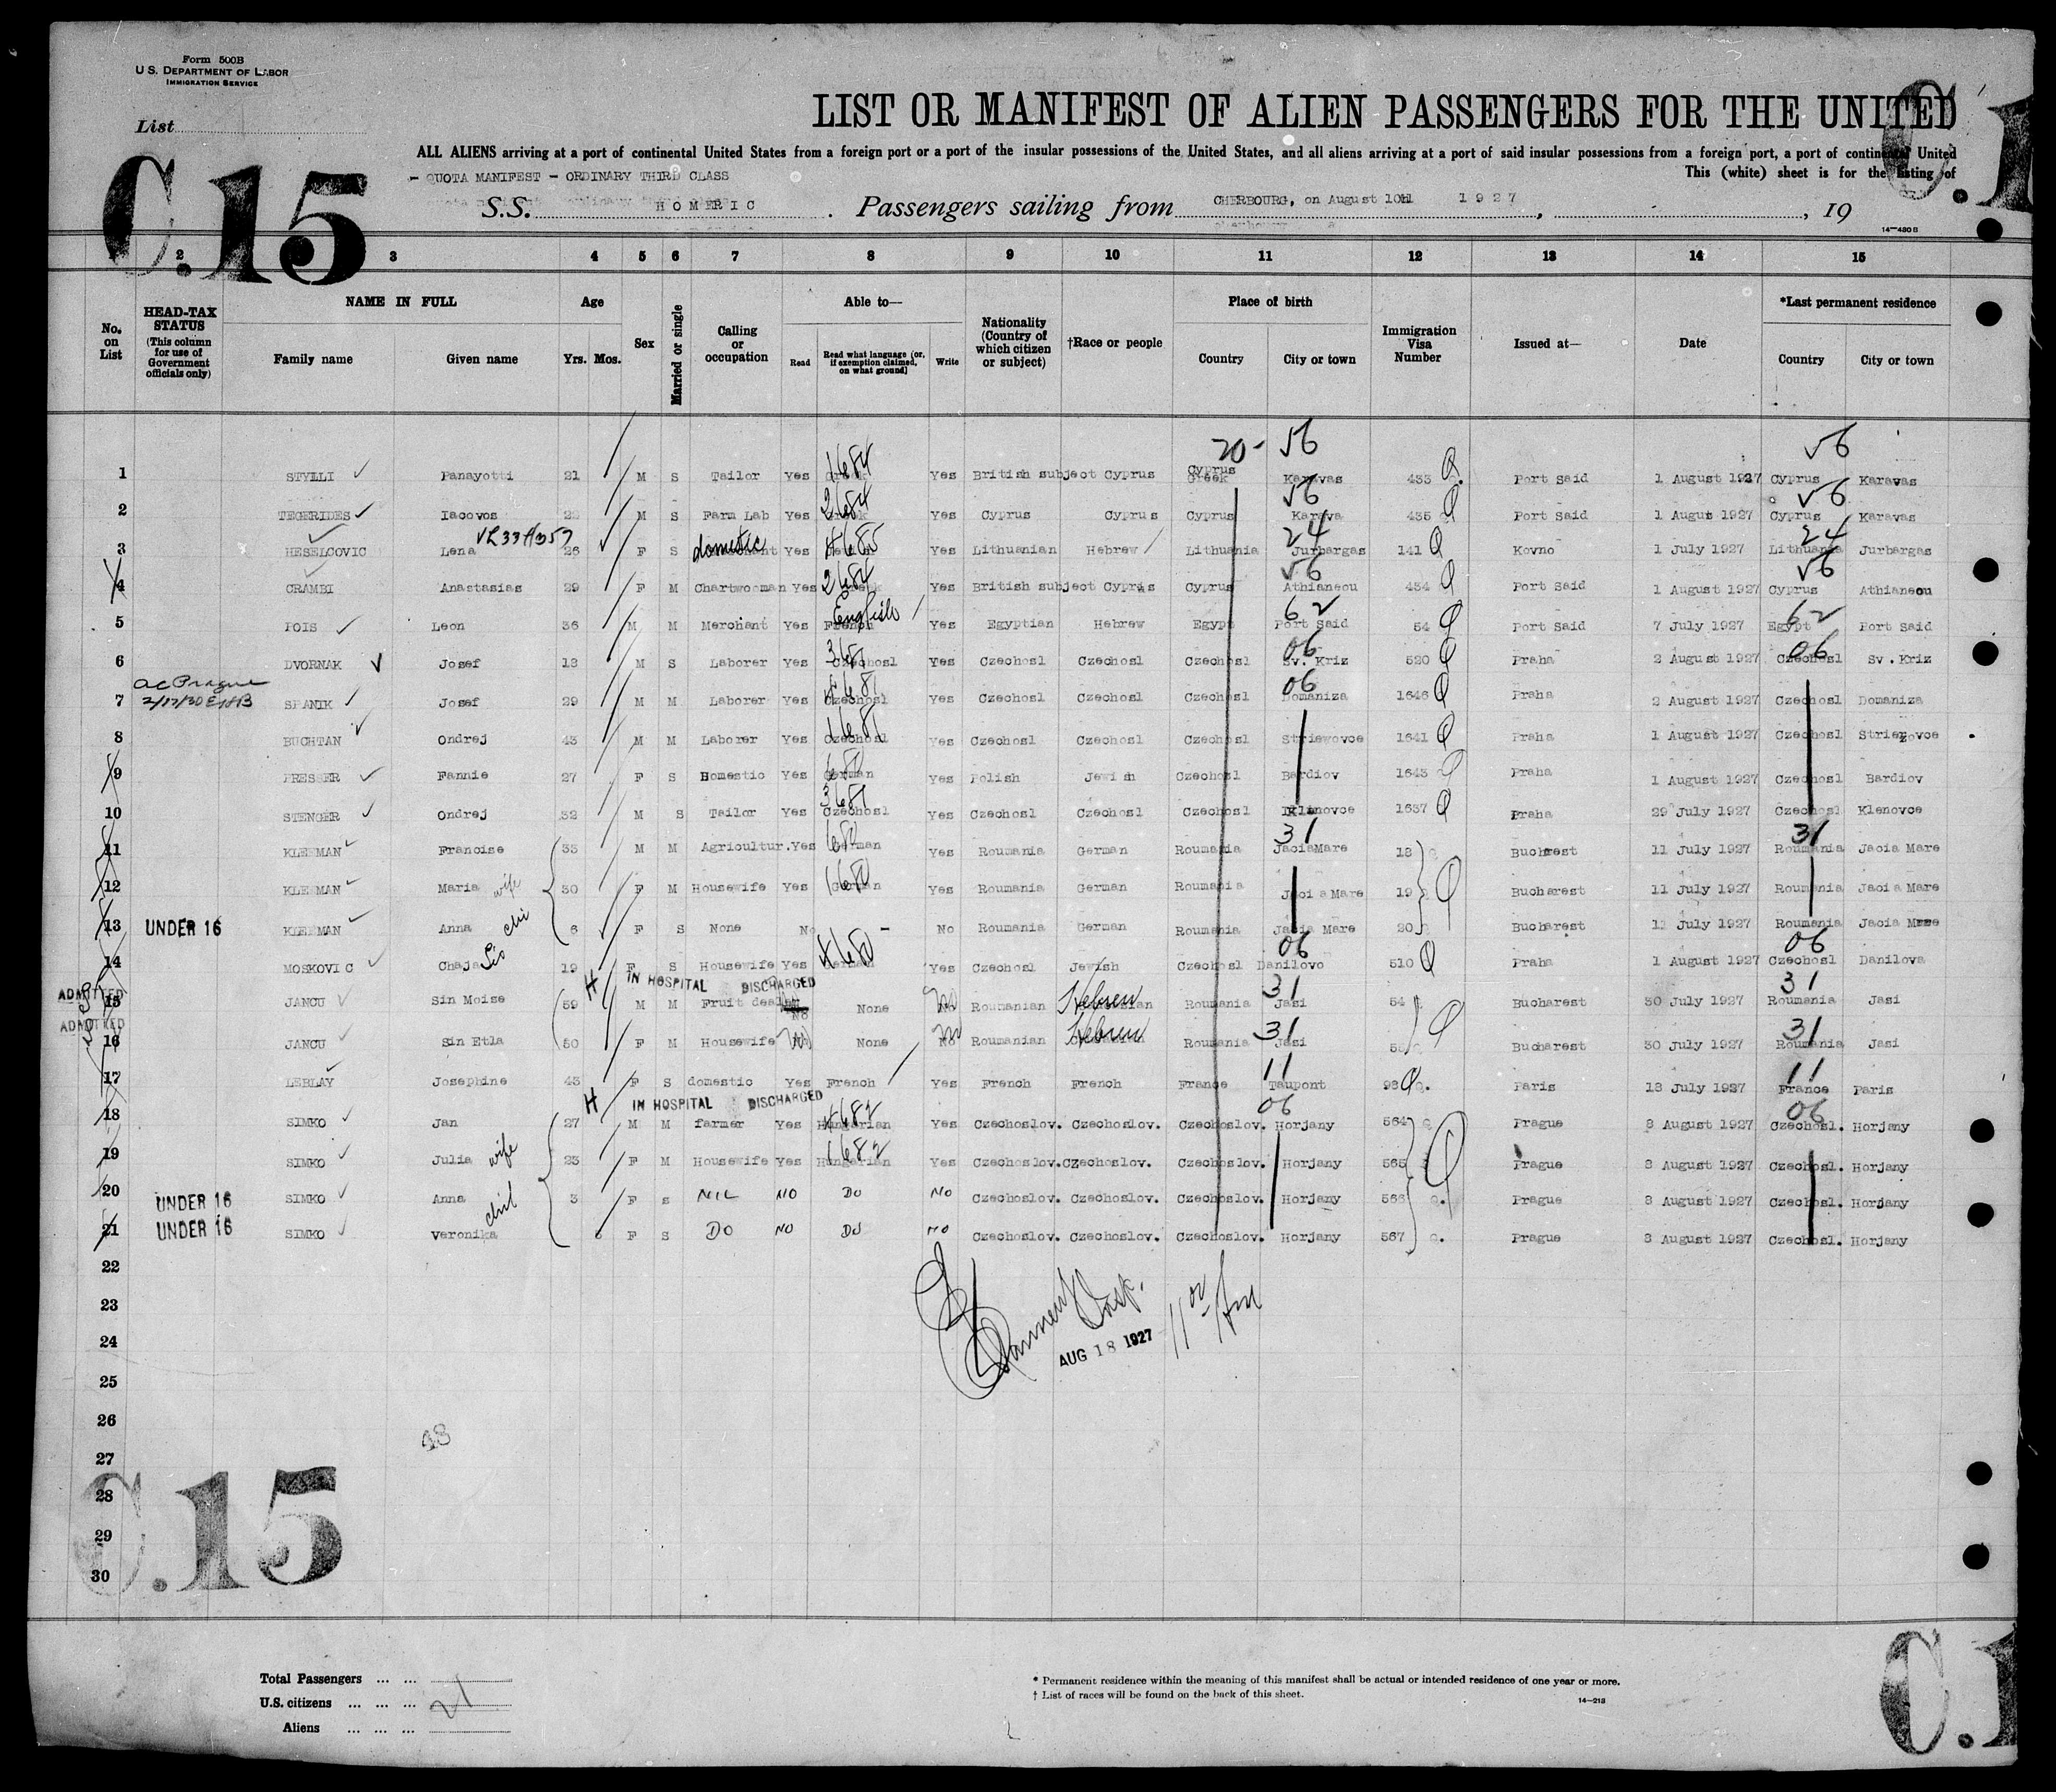 Form 500B
U.S. DEPARTMENT OF LABOR
IMMIGRATION SERVICE
List
C.15
C.1
LIST OR MANIFEST OF ALIEN PASSENGERS FOR THE UNITED
ALL ALIENS arriving at a port of continental United States from a foreign port or a port of the insular possessions of the United States, and all aliens arriving at a port of said insular possessions from a foreign port, a port of continental United
- QUOTA MANIFEST - ORDINARY THIRD CLASS
This (white) sheet is for the listing of
S.S. HOMERIC . Passengers sailing from CHERBOURG, on August 10th 1927, , 19
14-480 B
2 3 4 5 6 7 8 9 10 11 12 13 14 15
No. on List
HEAD-TAX STATUS (This column for use of Government officials only)
NAME IN FULL
Family name Given name
Age
Yrs. Mos.
Sex
Married or single
Calling or occupation
Able to—
Read Read what language (or, if exemption claimed, on what ground) Write
Nationality (Country of which citizen or subject)
†Race or people
Place of birth
Country City or town
Immigration Visa Number
Issued at—
Date
*Last permanent residence
Country City or town
20- 56 56
1 STYLLI Panayotti 21 M S Tailor Yes 1684 Yes British subject Cyprus Cyprus Greek Karavas 433 Port Said 1 August 1927 Cyprus Karavas
56 56
2 TEGERIDES Iacovos M S Farm Lab Yes 2684 Yes Cyprus Cyprus Cyprus Karava 435 Port Said 1 August 1927 Cyprus Karavas
24 24
3 HESELCOVIC Lena 26 F S domestic Yes 4685 Yes Lithuanian Hebrew Lithuania Jurbargas 141 Kovno 1 July 1927 Lithuania Jurbargas
56 56
4 CRAMBI Anastasias 29 F M Chartwooman Yes 2684 Yes British subject Cyprus Cyprus Athianeou 434 Port Said 1 August 1927 Cyprus Athianeou
62 62
5 POIS Leon 36 M M Merchant Yes French English Yes Egyptian Hebrew Egypt Port Said 54 Port Said 7 July 1927 Egypt Port Said
06 06
6 DVORNAK Josef 18 M S Laborer Yes Czechosl Yes Czechosl Czechosl Czechosl Sv. Kriz 520 Praha 2 August 1927 Czechosl Sv. Kriz
ac Prague
06
7 SPANIK Josef 29 M M Laborer Yes Czechosl Yes Czechosl Czechosl Czechosl Domaniza 1646 Praha 2 August 1927 Czechosl Domaniza
8 BUCHTAN Ondrej 43 M M Laborer Yes Czechosl Yes Czechosl Czechosl Czechosl Striewovce 1641 Praha 1 August 1927 Czechosl Striezovce
9 PRESSER Fannie 27 F S Domestic Yes German Yes Polish Jewish Czechosl Bardiov 1643 Praha 1 August 1927 Czechosl Bardiov
10 STENGER Ondrej 32 M S Tailor Yes Czechosl Yes Czechosl Czechosl Czechosl Klenovce 1637 Praha 29 July 1927 Czechosl Klenovce
31 31
11 KLEEMAN Francise 33 M M Agricultur. Yes German Yes Roumania German Roumania JaciaMare 18 Bucharest 11 July 1927 Roumania Jacia Mare
12 KLEEMAN Maria wife 30 F M Housewife Yes German Yes Roumania German Roumania Jacia Mare 19 Bucharest 11 July 1927 Roumania Jacia Mare
13 UNDER 16 KLEEMAN Anna 6 F S None No - No Roumania German Roumania Jacia Mare 20 Bucharest 11 July 1927 Roumania Jacia Mare
06 06
14 MOSKOVIC Chaja 19 F S Housewife Yes Yes Czechosl Jewish Czechosl Danilovo 510 Praha 1 August 1927 Czechosl Danilova
H IN HOSPITAL DISCHARGED
31 31
ADMITTED
15 JANCU Sin Moise 59 M M Fruit dealer No None No Roumanian Hebrew Roumania Jasi 54 Bucharest 30 July 1927 Roumania Jasi
ADMITTED
31 31
16 JANCU Sin Etla 50 F M Housewife No None No Roumanian Hebrew Roumania Jasi 55 Bucharest 30 July 1927 Roumania Jasi
11 11
17 LEBLAY Josephine 43 F S domestic Yes French Yes French French France Taupont 98 Paris 18 July 1927 France Paris
H IN HOSPITAL DISCHARGED
06 06
18 SIMKO Jan 27 M M farmer Yes Hungarian Yes Czechoslov. Czechoslov. Czechoslov. Horjany 564 Prague 8 August 1927 Czechosl. Horjany
19 SIMKO Julia wife 23 F M Housewife Yes Hungarian Yes Czechoslov. Czechoslov. Czechoslov. Horjany 565 Prague 8 August 1927 Czechosl. Horjany
20 UNDER 16 SIMKO Anna 3 F S NIL NO DO NO Czechoslov. Czechoslov. Czechoslov. Horjany 566 Prague 8 August 1927 Czechosl. Horjany
21 UNDER 16 SIMKO Veronika 6 F S DO NO DO NO Czechoslov. Czechoslov. Czechoslov. Horjany 567 Prague 8 August 1927 Czechosl. Horjany
22
23
24
AUG 18 1927
25
26
27
28
29
30
C.15
Total Passengers ... ...
U.S. citizens ... ... ... 21
Aliens ... ... ...
* Permanent residence within the meaning of this manifest shall be actual or intended residence of one year or more.
† List of races will be found on the back of this sheet.
14-213
C.1